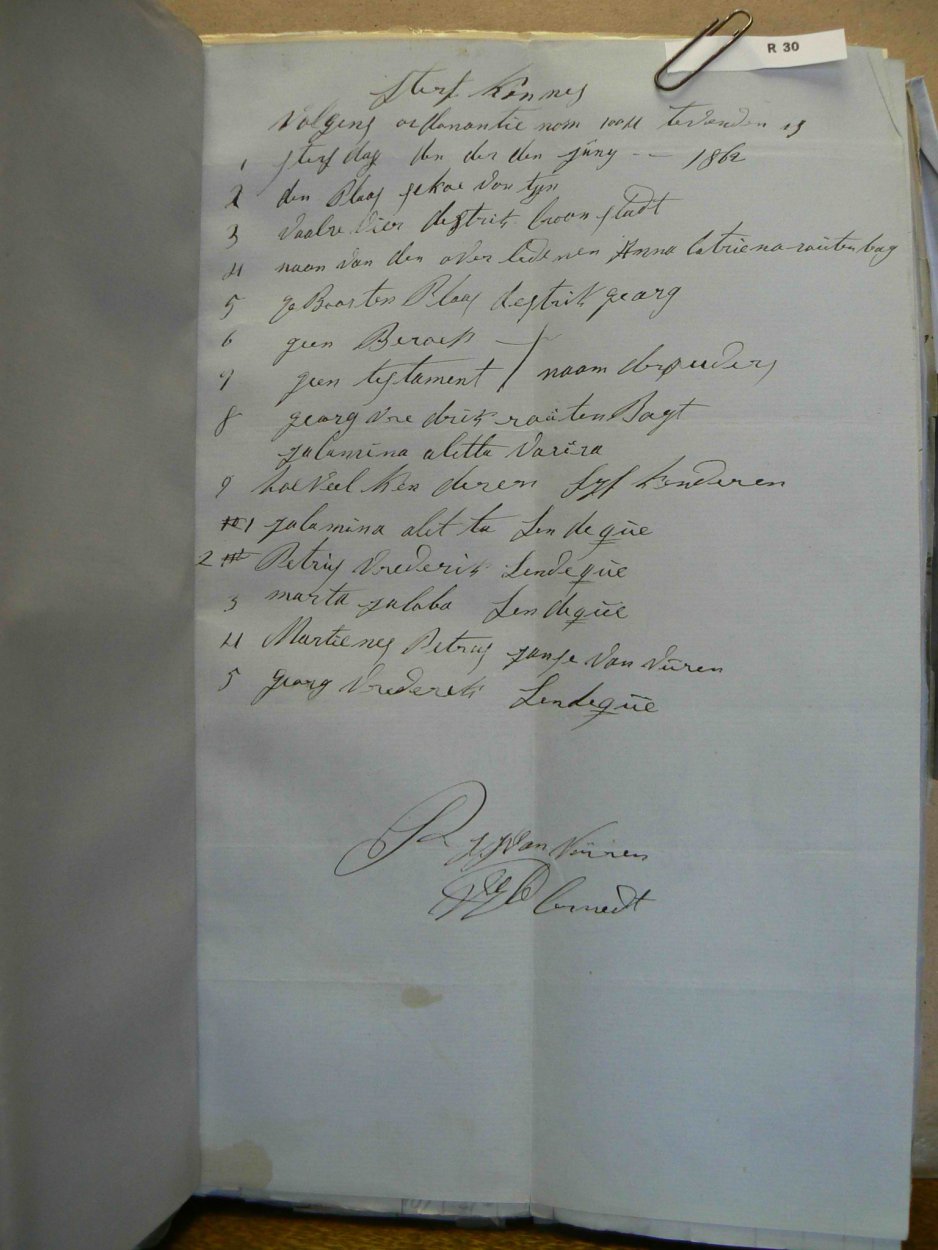 R 30
Sterf Kennes
volgens ordonantie nom te venden is
1 sterf dag den der den juny -- 1862
2 den Plaas
3 vaalre vier destrik kroon stadt
4 naan van den over ledenen Anna Catriena rautenbag
5 geBoorten Plaas destrik georg
6 geen Beroep
7 geen testament / naam der ouders
8 georg vre drik rauten Bagt
salamina aletta
9 hoe veel ken deren fyf kenderen
1 salamina alet ta Lendeque
2 Petrus vrederik Lendeque
3 marta Lendeque
4 Martienes Petrus janse van vuren
5 georg vrederek Lendeque
van vuuren